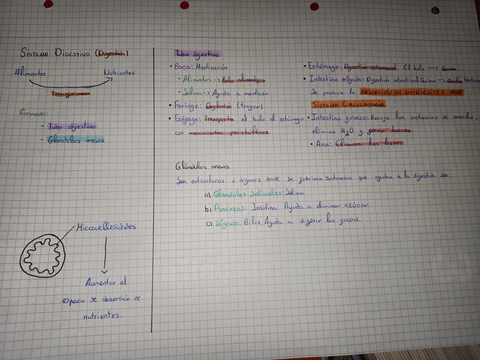 SISTEMA DIGESTIVO (Digestión)
Alimentos Nutrientes
Transforman
Formado:
- Tubo digestivo
- Glándulas anexas
Microvellosidades
Aumentar el
espacio de absorción de
nutrientes.
Tubo digestivo
• Boca: Masticación
- Alimentos → bolo alimenticio
- Saliva → Ayuda a masticar
• Faringe: Deglución (tragar)
• Esófago: Transporta el bolo al estómago
con movimientos peristálticos
• Estómago: Digestión estomacal. El bolo →
• Intestino delgado: Digestión intestinal
Se produce la ABSORCIÓN DE NUTRIENTES POR
SISTEMA CIRCULATORIO
• Intestino grueso: las sustancias de desecho,
elimina H2O y genera heces
• Ano: Elimina las heces
Glándulas anexas
Son estructuras u órganos donde se fabrican sustancias que ayudan a la digestión son:
a) Glándulas Salivales: Saliva
b) Páncreas: Insulina. Ayuda a eliminar azúcar
c) Hígado: Bilis. Ayuda a digerir las grasas.